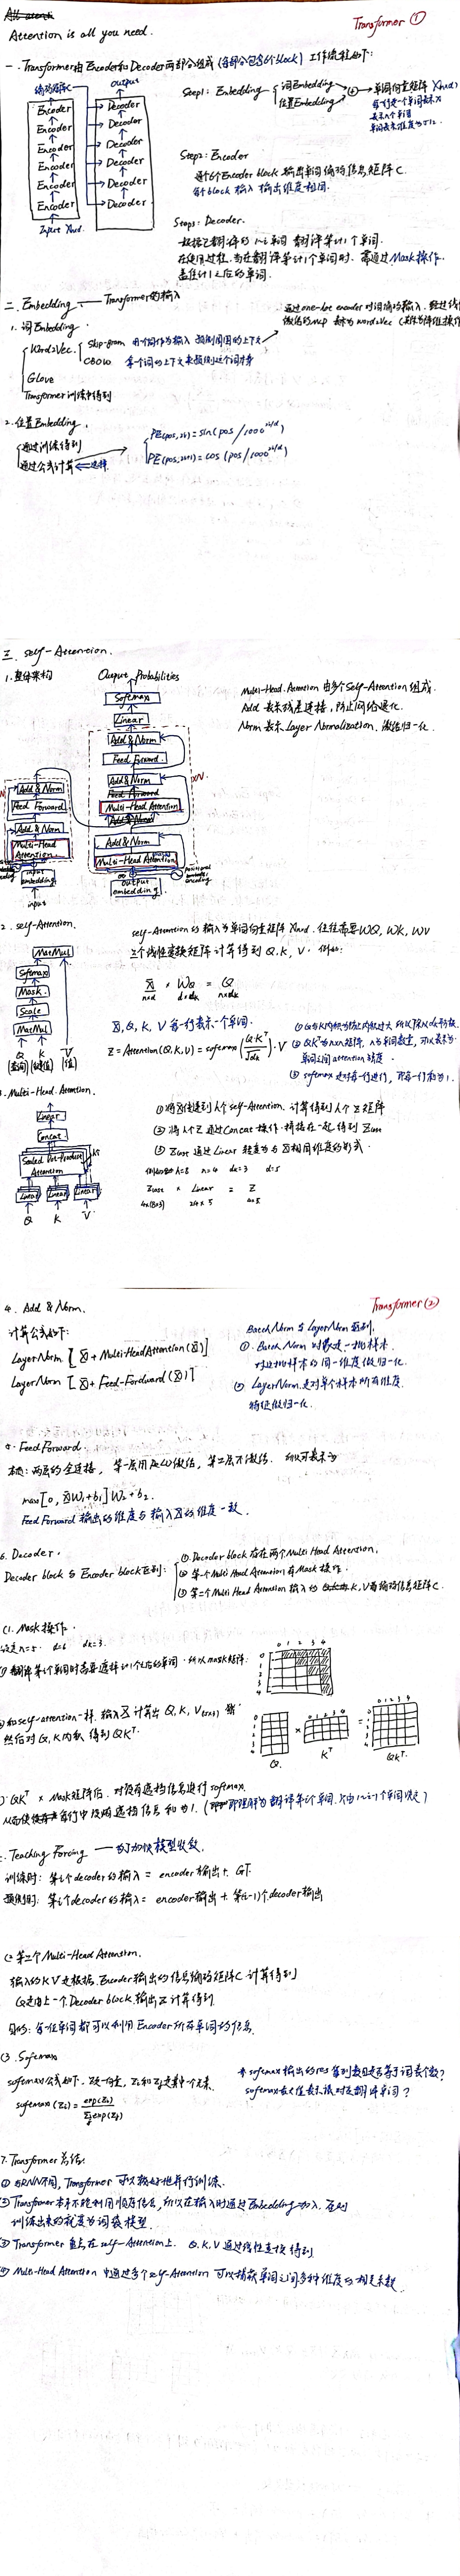 Attention is all you need.
Transformer ①
一. Transformer由Encoder和Decoder两部分组成 (各部分包含6个block) 工作流程如下:
output
Encoder
Encoder
Encoder
Encoder
Encoder
Encoder
Input Xn×d
Decoder
Decoder
Decoder
Decoder
Decoder
Decoder
Step1: Embedding
词Embedding
位置Embedding
单词向量矩阵 Xn×d
每一行是一个单词表示x
表示n个单词
单词表示维度为512
Step2: Encoder
通过6个Encoder block 输出单词编码信息矩阵C.
每个block 输入输出维度相同.
Step3: Decoder.
根据已翻译的1~i单词 翻译第i+1个单词.
在使用过程, 当在翻译第i+1个单词时, 需通过Mask操作.
盖住i+1之后的单词.
二. Embedding. — Transformer的输入
1. 词Embedding.
Word2Vec.
Skip-gram 用一个词作为输入 预测周围的上下文
CBOW 拿一个词的上下文来预测这个词本身
Glove
Transformer训练中得到
通过one-hot encoder对词编码输入
2. 位置Embedding.
通过训练得到
通过公式计算 ⇐ 选择
PE(pos,2i) = sin(pos/1000^2i/d)
PE(pos,2i+1) = cos(pos/1000^2i/d)
三. Self-Attention.
1. 整体架构
Output Probabilities
Softmax
Linear
Add & Norm
Feed Forward
Add & Norm
Multi-Head Attention
Add & Norm
Multi-Head Attention
output embedding
Add & Norm
Feed Forward
Add & Norm
Multi-Head Attention
input embedding
input
Multi-Head Attention 由多个Self-Attention组成.
Add 表示残差连接, 防止网络退化.
Norm表示Layer Normalization. 激活归一化.
2. self-Attention.
MatMul
Softmax
Mask.
Scale
MatMul
Q K V
(查询) (键值) (值)
self-Attention的输入为单词向量矩阵Xn×d. 往往需要WQ, WK, WV
三个线性变换矩阵计算得到Q, K, V. 例如:
X × WQ = Q
n×d d×dk n×dk
X, Q, K, V 每一行表示一个单词.
Z = Attention(Q, K, V) = softmax(Q·K^T/√dk)·V
② QK^T为n×n矩阵, n为单词数量, 可以表示为
单词之间attention强度.
③ softmax是对每一行进行, 即每一行和为1.
3. Multi-Head. Attention.
Linear
Concat
Scaled Dot-Product
Attention
Linear Linear Linear
Q K V
① 将X传递到h个self-Attention. 计算得到h个Z矩阵
② 将h个Z通过Concat操作拼接在一起 得到Zconc
③ Zconc通过Linear 转变为与X相同维度的形式.
h=8 n=4 dk=3 d=5
Zconc × Linear = Z
4×(8×3) 24×5 4×5
Transformer(2)
4. Add & Norm.
计算公式如下:
LayerNorm [ X + MultiHeadAttention(X)]
LayerNorm [ X + Feed-Fordward(X)]
Batch Norm 与 LayerNorm 区别.
① Batch Norm 对象是一批样本.
对这批样本的同一维度做归一化.
② LayerNorm. 是对单个样本所有维度
特征做归一化.
5. Feed Forward.
本质: 两层的全连接, 第一层用ReLU激活, 第二层不激活. 所以可表示为
max[0, XW1+b1]W2+b2.
Feed Forward 输出的维度与输入X的维度一致.
6. Decoder.
Decoder block与Encoder block区别:
① Decoder block存在两个Multi Head Attention.
② 第一个Multi Head Attention有Mask操作.
③ 第二个Multi Head Attention输入的K, V有编码信息矩阵C.
(1. Mask操作.
设定n=5. d=6 dk=3.
① 翻译第i个单词时需要遮掩i+1个之后的单词. 所以mask矩阵:
0 1 2 3 4
0
1
2
3
4
② 和self-attention一样. 输入X计算出Q, K, V(5×3)
然后对Q, K内积 得到QK^T.
Q K^T QK^T
③ QK^T × Mask矩阵后. 对没有遮挡信息进行softmax.
Teaching Forcing — 为了加快模型收敛.
训练时: 第i个decoder的输入 = encoder输出 + GT.
预测时: 第i个decoder的输入 = encoder输出 + 第(i-1)个decoder输出
(2 第二个Multi-Head Attention.
输入的KV是根据. Encoder输出的信息编码矩阵C 计算得到
Q是由上一个Decoder block输出Z计算得到
目的: 每一位单词都可以利用Encoder所有单词的信息.
(3. Softmax
softmax公式如下. Z是一向量, Zi和Zj是其中一个元素.
softmax(Zi) = exp(Zi)/Σj exp(Zj)
* softmax输出的res每列数目是否等于词表个数?
softmax最大值表示该对应翻译单词?
7. Transformer总结.
① 与RNN不同, Transformer可以较好地并行训练.
② Transformer本身不能利用顺序信息, 所以在输入时通过Embedding加入. 否则
训练出来的就变为词袋模型.
③ Transformer重点在self-Attention上. Q, K, V通过线性变换得到
④ Multi-Head Attention中通过多个self-Attention可以捕获单词之间多种维度的相关系数.